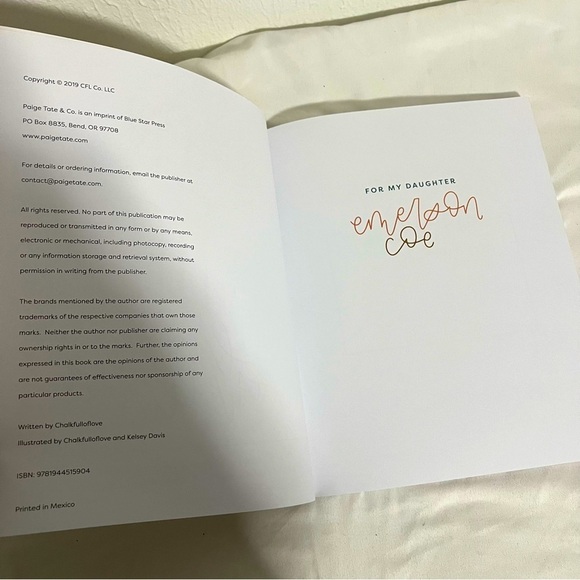 Copyright © 2019 CFL Co. LLC
Paige Tate & Co. is an imprint of Blue Star Press
PO Box 8835, Bend, OR 97708
www.paigetate.com
For details or ordering information, email the publisher at
contact@paigetate.com.
All rights reserved. No part of this publication may be
reproduced or transmitted in any form or by any means,
electronic or mechanical, including photocopy, recording
or any information storage and retrieval system, without
permission in writing from the publisher.
The brands mentioned by the author are registered
trademarks of the respective companies that own those
marks. Neither the author nor publisher are claiming any
ownership rights in or to the marks. Further, the opinions
expressed in this book are the opinions of the author and
are not guarantees of effectiveness nor sponsorship of any
particular products.
Written by Chalkfulloflove
Illustrated by Chalkfulloflove and Kelsey Davis
ISBN: 9781944515904
Printed in Mexico
FOR MY DAUGHTER
emerson
coe